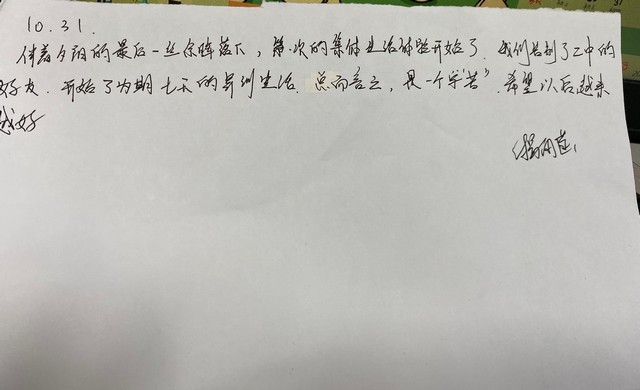 10.31.
伴着夕阳的最后一丝余晖落下，第一次的集体生活体验开始了. 我们告别了二中的
好友. 开始了为期七天的异训生活. 总而言之，是一个辛苦". 希望以后越来
越好